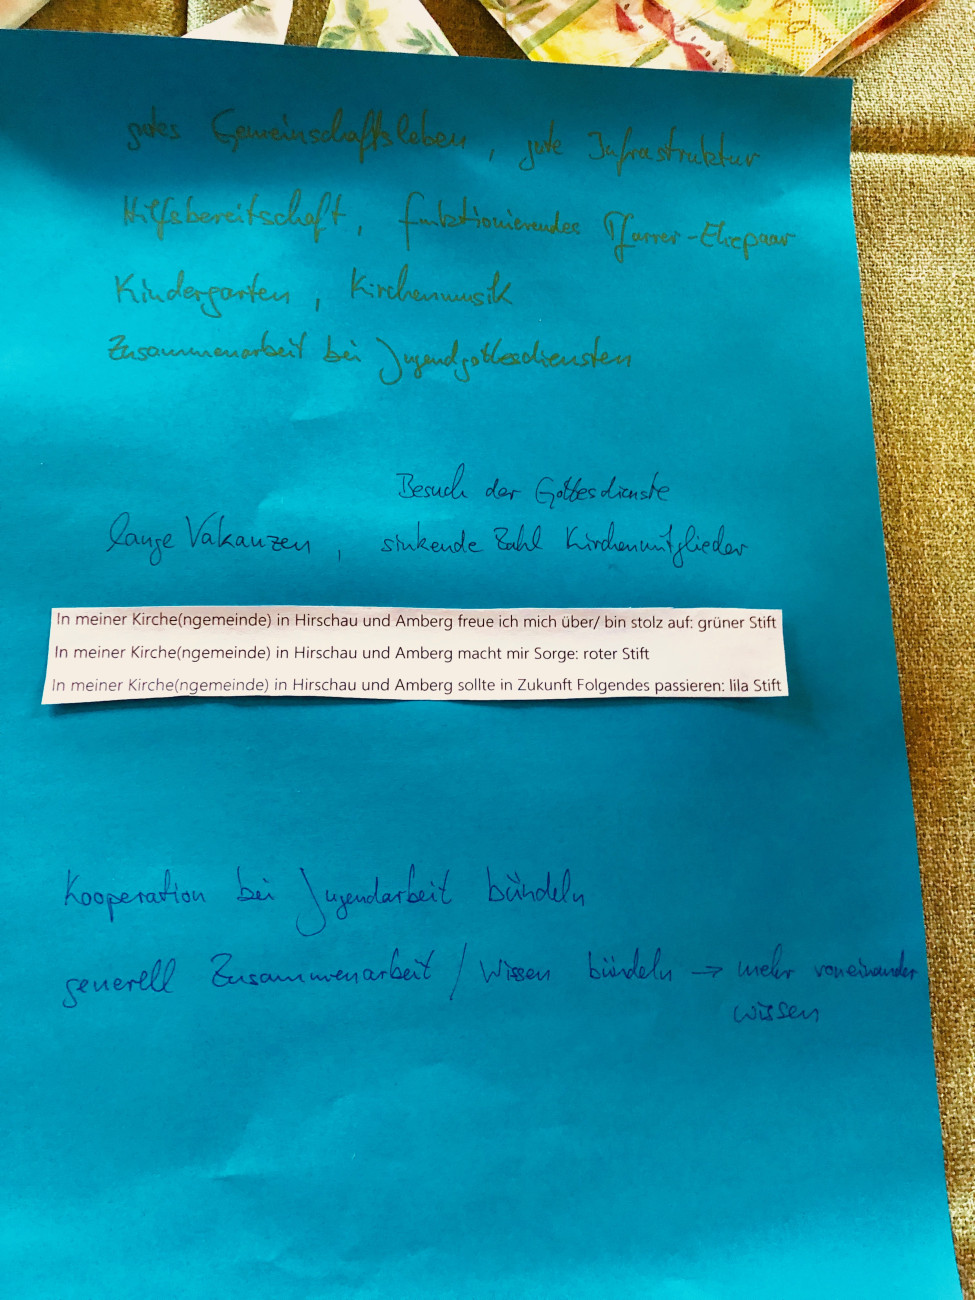 gutes Gemeinschaftsleben, gute Infrastruktur
Hilfsbereitschaft, funktionierendes Pfarrer-Ehepaar
Kindergarten, Kirchenmusik
Zusammenarbeit bei Jugendgottesdiensten
Besuch der Gottesdienste
lange Vakanzen, sinkende Zahl Kirchenmitglieder
In meiner Kirche(ngemeinde) in Hirschau und Amberg freue ich mich über/ bin stolz auf: grüner Stift
In meiner Kirche(ngemeinde) in Hirschau und Amberg macht mir Sorge: roter Stift
In meiner Kirche(ngemeinde) in Hirschau und Amberg sollte in Zukunft Folgendes passieren: lila Stift
Kooperation bei Jugendarbeit bündeln
generell Zusammenarbeit / Wissen bündeln → mehr voneinander
wissen